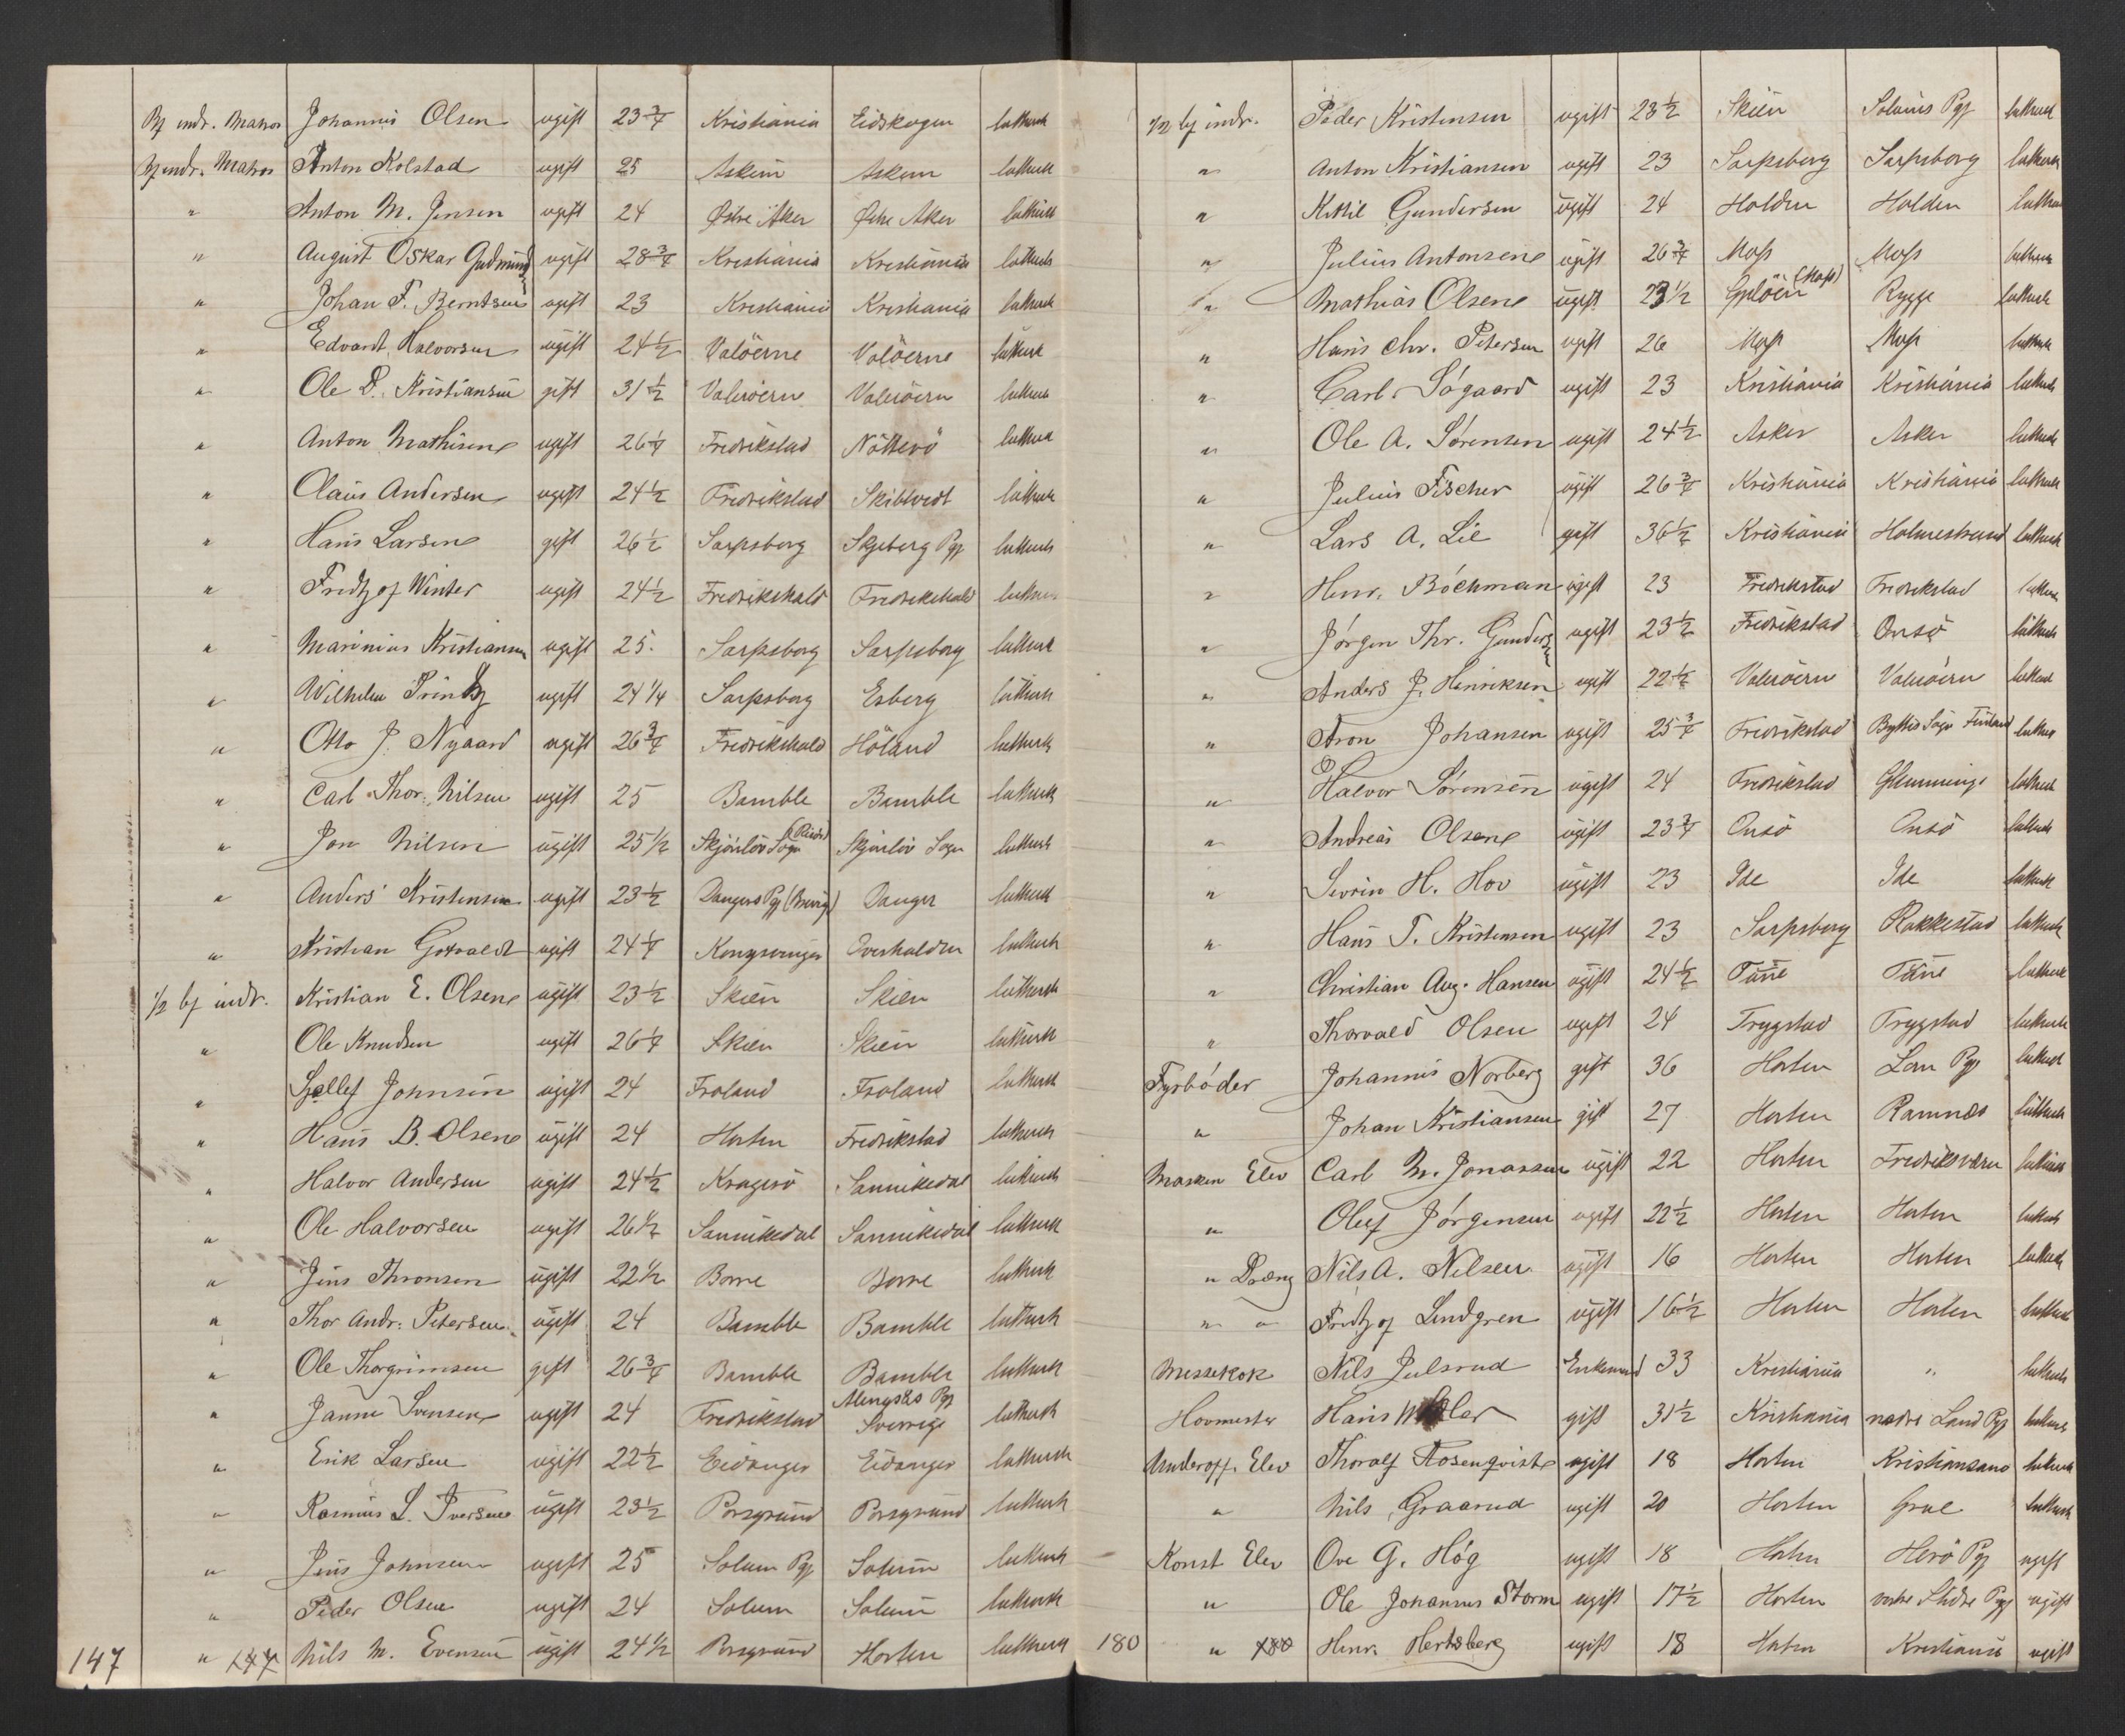 Bf indr. Matros Johannis Olsen ugift 23 3/4 Kristiania Eidskogen luthersk
Bf indr. Matros Anton Kolstad ugift 25 Askim Askim luthersk
" Anton M. Jensen ugift 24 Østre Aker Østre Aker luthersk
" August Oskar Gudmunds ugift 28 3/4 Kristiania Kristiania luthersk
" Johan F. Berntsen ugift 23 Kristiania Kristiania luthersk
" Edvardt Halvorsen ugift 24 1/2 Valöerne Valöerne luthersk
" Ole D. Kristiansen gift 31 1/2 Valeröern Valeröern luthersk
" Anton Mathisen ugift 26 1/4 Fredrikstad Nötterö luthersk
" Claus Andersen ugift 24 1/2 Fredrikstad Skibtvedt luthersk
" Hans Larsen gift 26 1/2 Sarpsborg Skjeberg Pgj luthersk
" Fridtjof Winter ugift 24 1/2 Fredrikshald Fredrikshald luthersk
" Marinius Kristiansen ugift 25. Sarpsborg Sarpsborg luthersk
" Wilhelm Printz ugift 24 1/4 Sarpsborg Esberg luthersk
" Otto J. Nygaard ugift 26 3/4 Fredrikshald Höland luthersk
" Carl Thor: Nilsen ugift 25 Bamble Bamble luthersk
" Jon Nilsen ugift 25 1/2 Skjönlöv Sogn Skjönlöv Sogn luthersk
" Anders Kristensen ugift 23 1/2 Dangers Pgj Danger luthersk
" Kristian Gotvaldt ugift 24 1/4 Kongsvinger Overhalden luthersk
1/2 bf indr. Kristian E. Olsen ugift 23 1/2 Skien Skien luthersk
" Ole Knudsen ugift 26 1/4 Skien Skien luthersk
" Sjellef Johnsen ugift 24 Froland Froland luthersk
" Hans B. Olsen ugift 24 Horten Fredrikstad luthersk
" Halvor Andersen ugift 24 1/2 Kragerö Sannikedal luthersk
" Ole Halvorsen ugift 26 1/2 Sannikedal Sannikedal luthersk
" Jens Thronsen ugift 22 1/2 Borre Borre luthersk
" Thor Andr: Petersen ugift 24 Bamble Bamble luthersk
" Ole Thorgrimsen gift 26 3/4 Bamble Bamble luthersk
" Janne Svensen ugift 24 Fredrikstad Alingsås Pgj Sverrige luthersk
" Erik Larsen ugift 22 1/2 Eidanger Eidanger luthersk
" Rasmus L. Iversen ugift 23 1/2 Porsgrund Porsgrund luthersk
" Jens Johnsen ugift 25 Solum Pgj Solum luthersk
" Peder Olsen ugift 24 Solum Solum luthersk
147 " 147 Nils M. Evensen ugift 24 1/2 Porsgrund Horten luthersk
1/2 bf indr. Peder Kristensen ugift 23 1/2 Skien Solums Pgj luthersk
" Anton Kristiansen ugift 23 Sarpsborg Sarpsborg luthersk
" Kittil Gundersen ugift 24 Holden Holden luthersk
" Julius Antonsen ugift 26 3/4 Moss Moss luthersk
" Mathias Olsen ugift 23 1/2 Gjelöen (Moss) Rygge luthersk
" Hans Chr. Petersen ugift 26 Moss Moss luthersk
" Carl Sögaard ugift 23 Kristiania Kristiania luthersk
" Ole A. Sörensen ugift 24 1/2 Asker Asker luthersk
" Julius Fischer ugift 26 3/4 Kristiania Kristiania luthersk
" Lars A. Lie gift 36 1/2 Kristiania Holmestrand luthersk
" Henr. Böchman ugift 23 Fredrikstad Fredrikstad luthersk
" Jörgen Thr. Gunders ugift 23 1/2 Fredrikstad Onsö luthersk
" Anders J. Henriksen ugift 22 1/2 Valeröern Valeröern luthersk
" Aron Johansen ugift 25 3/4 Fredrikstad Sogn Finland luthersk
" Halvor Sörensen ugift 24 Fredrikstad Glemminge luthersk
" Andreas Olsen ugift 23 3/4 Onsö Onsö luthersk
" Sevrin H. Hov ugift 23 Ide Ide luthersk
" Hans T. Kristensen ugift 23 Sarpsborg Rakkestad luthersk
" Christian Aug. Hansen ugift 24 1/2 Tune Tune luthersk
" Thorvald Olsen ugift 24 Trygstad Trygstad luthersk
Fyrböder Johannis Norberg gift 36 Horten Lom Pgj luthersk
" Johan Kristiansen gift 27 Horten Ramnæs luthersk
Maskin Elev Carl M. Jonassen ugift 22 Horten Fredriksværn luthersk
" Oluf Jörgensen ugift 22 1/2 Horten Horten luthersk
" Dreng Nils A. Nilsen ugift 16 Horten Horten luthersk
" " Fridtjof Lindgren ugift 16 1/2 Horten Horten luthersk
Messekok Nils Julsrud Enkemand 33 Kristiania " luthersk
Hovmester Hans gift 31 1/2 Kristiania nedre Land Pgj luthersk
Underoff. Elev Thoralf Rosenqvist ugift 18 Horten Kristiansand luthersk
" Nils Graarud ugift 20 Horten Grue luthersk
Konst Elev Ove G. Hög ugift 18 Horten Herö Pgj ugift
" Ole Johannes Storm ugift 17 1/2 Horten vestre Slidre Pgj ugift
180 " 180 Henr. Hertsberg ugift 18 Horten Kristiania ugift